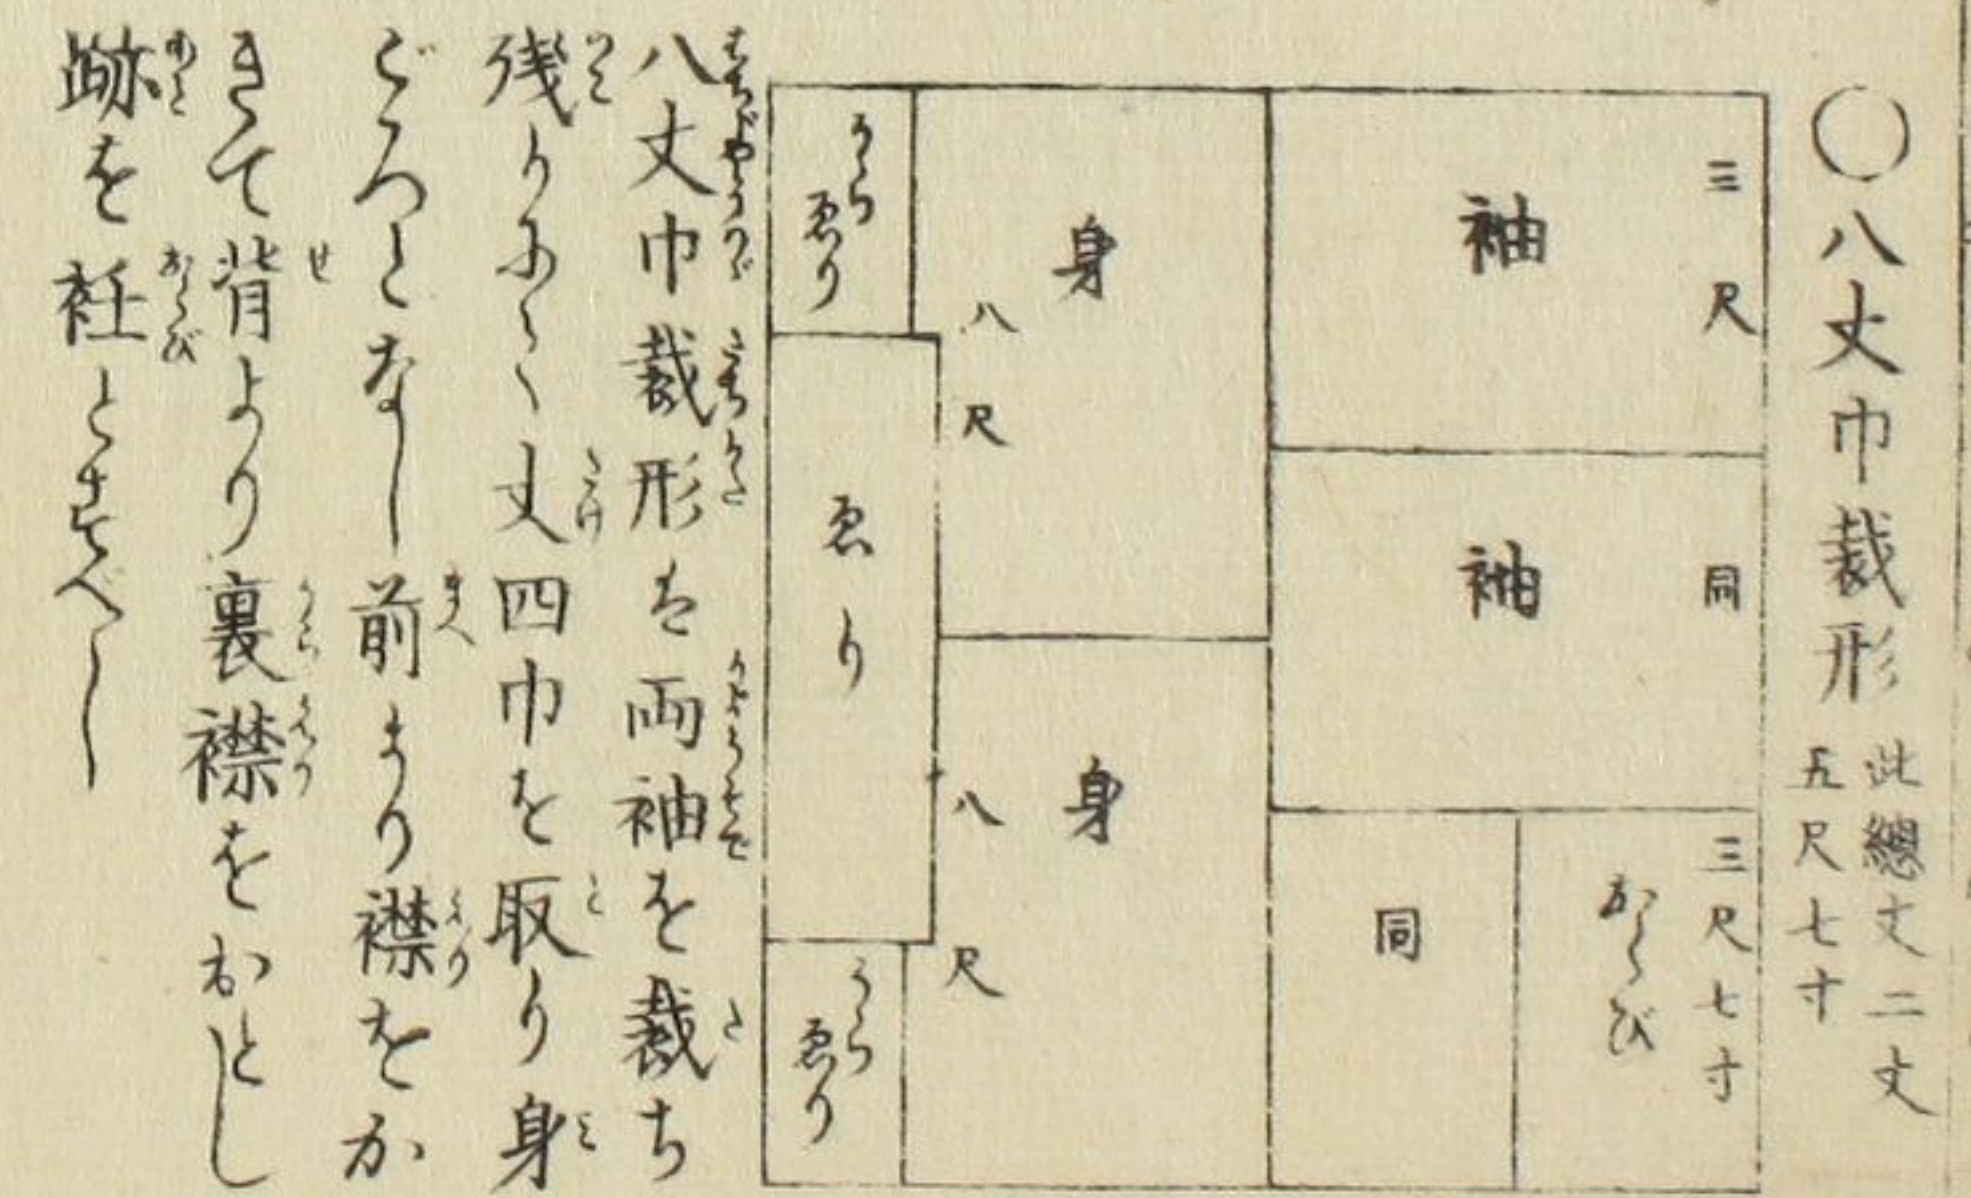 〇八丈巾裁形 此總丈二丈
五尺七寸
三尺
袖
同
袖
三尺七寸
おくび
同
身
八尺
身
八尺
うら
ゑり
ゑり
うら
ゑり
八丈巾裁形は両袖を裁ち
残りにて丈四巾を取り身
ごろとなし前より襟をか
きて背より裏襟をおとし
跡を衽とすべし